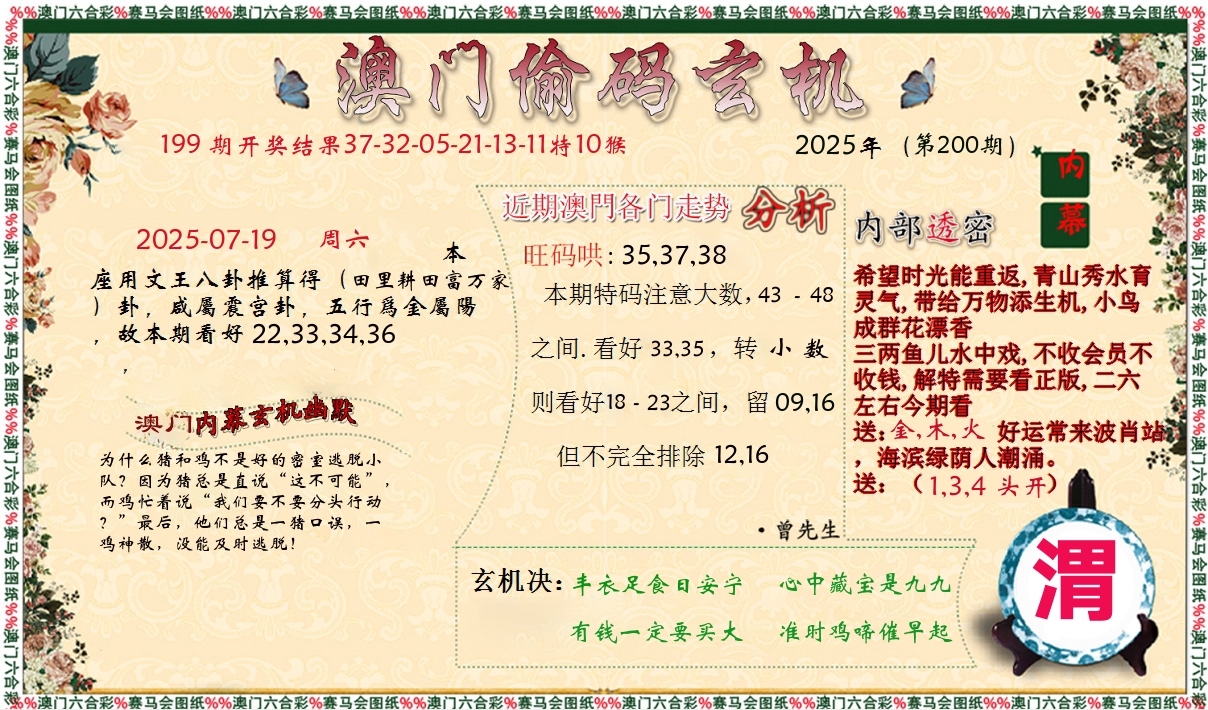 %%澳门六合彩%赛马会图纸%%澳门六合彩%赛马会图纸%%澳门六合彩%赛马会图纸%%澳门六合彩%赛马会图纸%%澳门六合彩%赛马会图纸%%澳门六合彩%赛马会图纸%%
澳门偷码玄机
199 期开奖结果37-32-05-21-13-11特10猴
2025年（第200期）
内幕
2025-07-19 周六
本
座用文王八卦推算得（田里耕田富万家
）卦，咸屬震宫卦，五行爲金屬陽
，故本期看好 22,33,34,36
，
澳门内幕玄机幽默
为什么猪和鸡不是好的密室逃脱小
队？因为猪总是直说“这不可能”，
而鸡忙着说“我们要不要分头行动
？”最后，他们总是一猪口误，一
鸡神散，没能及时逃脱！
近期澳門各门走势 分析
旺码哄: 35,37,38
本期特码注意大数, 43 - 48
之间. 看好 33,35 ，转 小 数
则看好18 - 23之间，留 09,16
但不完全排除 12,16
·曾先生
内部透密
希望时光能重返, 青山秀水育
灵气, 带给万物添生机, 小鸟
成群花漂香
三两鱼儿水中戏, 不收会员不
收钱, 解特需要看正版, 二六
左右今期看
送: 金, 木, 火 好运常来波肖站
，海滨绿荫人潮涌。
送: （1,3,4 头开）
玄机决: 丰衣足食日安宁 心中藏宝是九九
有钱一定要买大 准时鸡啼催早起
渭
%%澳门六合彩%赛马会图纸%%澳门六合彩%赛马会图纸%%澳门六合彩%赛马会图纸%%澳门六合彩%赛马会图纸%%澳门六合彩%赛马会图纸%%澳门六合彩%赛马会图纸%%